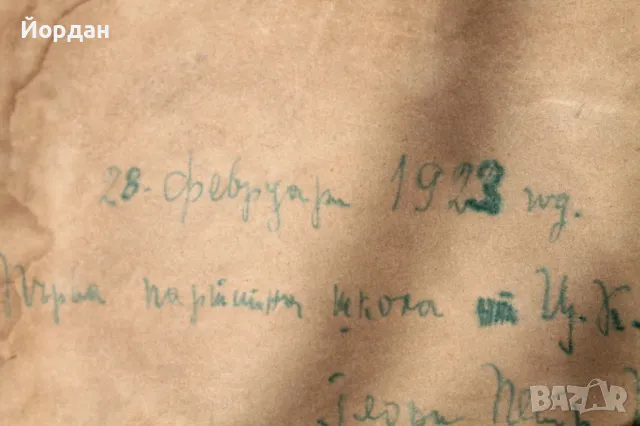 Йордан
28. февруари 1923 год.
Първа партийна школа при Ц.К.
Георги
BAZAR